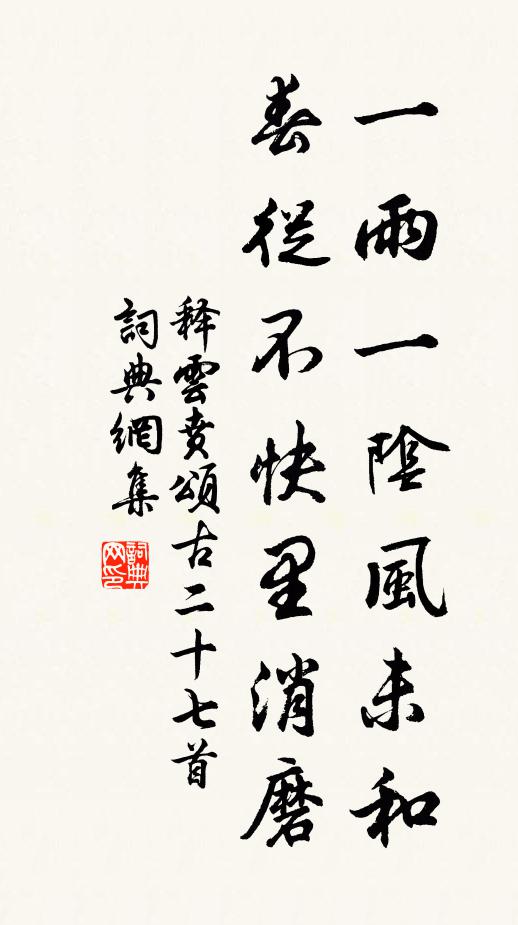 一雨一陰風未和
春從不快里消磨
释雲賁頌古二十七首
詞典網集
詞典网印